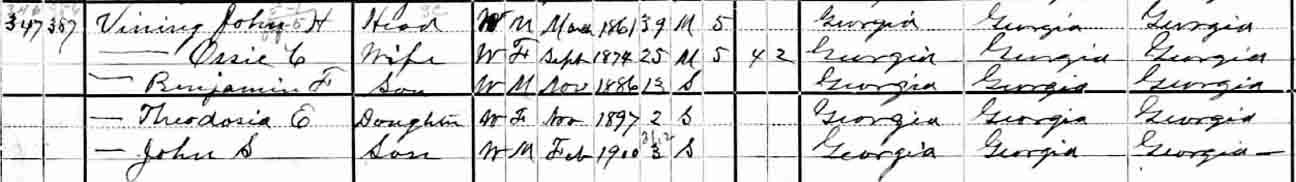 347 357 Vining John H Head W M Mar 1861 39 M 5 Georgia Georgia Georgia
— Ossie C Wife W F Sept 1874 25 M 5 4 2 Georgia Georgia Georgia
— Benjamin F Son W M Nov 1886 13 S Georgia Georgia Georgia
— Theodosia E Daughter W F Nov 1897 2 S Georgia Georgia Georgia
— John S Son W M Feb 1900 3/12 S Georgia Georgia Georgia —